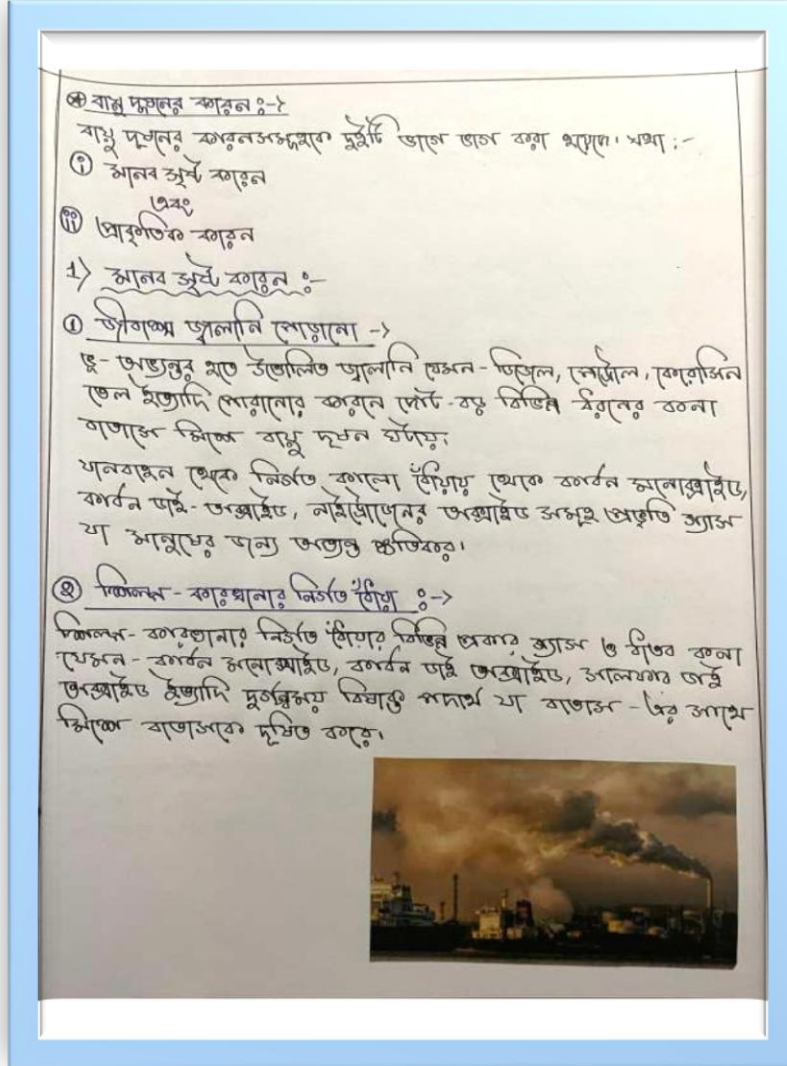 ⊛ বায়ু দূষনের কারন :->
বায়ু দূষনের কারনসমূহকে দুইটি ভাগে ভাগ করা হয়েছে। যথা :-
(i) মানব সৃষ্ট কারন
এবং
(ii) প্রাকৃতিক কারন
1> মানব সৃষ্ট কারন :-
① জীবাশ্ম জ্বালানি পোড়ানো ->
ভূ-অভ্যন্তর হতে উত্তোলিত জ্বালানি যেমন - ডিজেল, পেট্রোল, কেরোসিন
তেল ইত্যাদি পোরানোর কারনে ছোট-বড় বিভিন্ন ধরনের কনা
বাতাসে মিশে বায়ু দূষন ঘটায়।
যানবাহন থেকে নির্গত কালো ধোঁয়ায় থাকে কার্বন মনোক্সাইড,
কার্বন ডাই-অক্সাইড, নাইট্রোজেনের অক্সাইড সমূহ প্রভৃতি গ্যাস
যা মানুষের জন্য অত্যন্ত ক্ষতিকর।
② শিল্প-কারখানার নির্গত ধোঁয়া :->
শিল্প-কারখানার নির্গত ধোঁয়ার বিভিন্ন প্রকার গ্যাস ও ধাতব কনা
যেমন - কার্বন মনোক্সাইড, কার্বন ডাই অক্সাইড, সালফার ডাই
অক্সাইড ইত্যাদি দুর্গন্ধময় বিষাক্ত পদার্থ যা বাতাস-এর সাথে
মিশে বাতাসকে দূষিত করে।